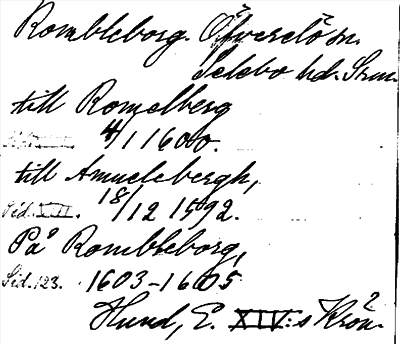 Rombleborg. Öfverselö sn.
Selebo hd. Srm.
till Romelberg
4/1 1600.
till Amuelebergh,
18/12 1592.
Sid.
På Rombleborg,
Sid. 123. 1603-1605
Hund, E. XIV:s Krön.